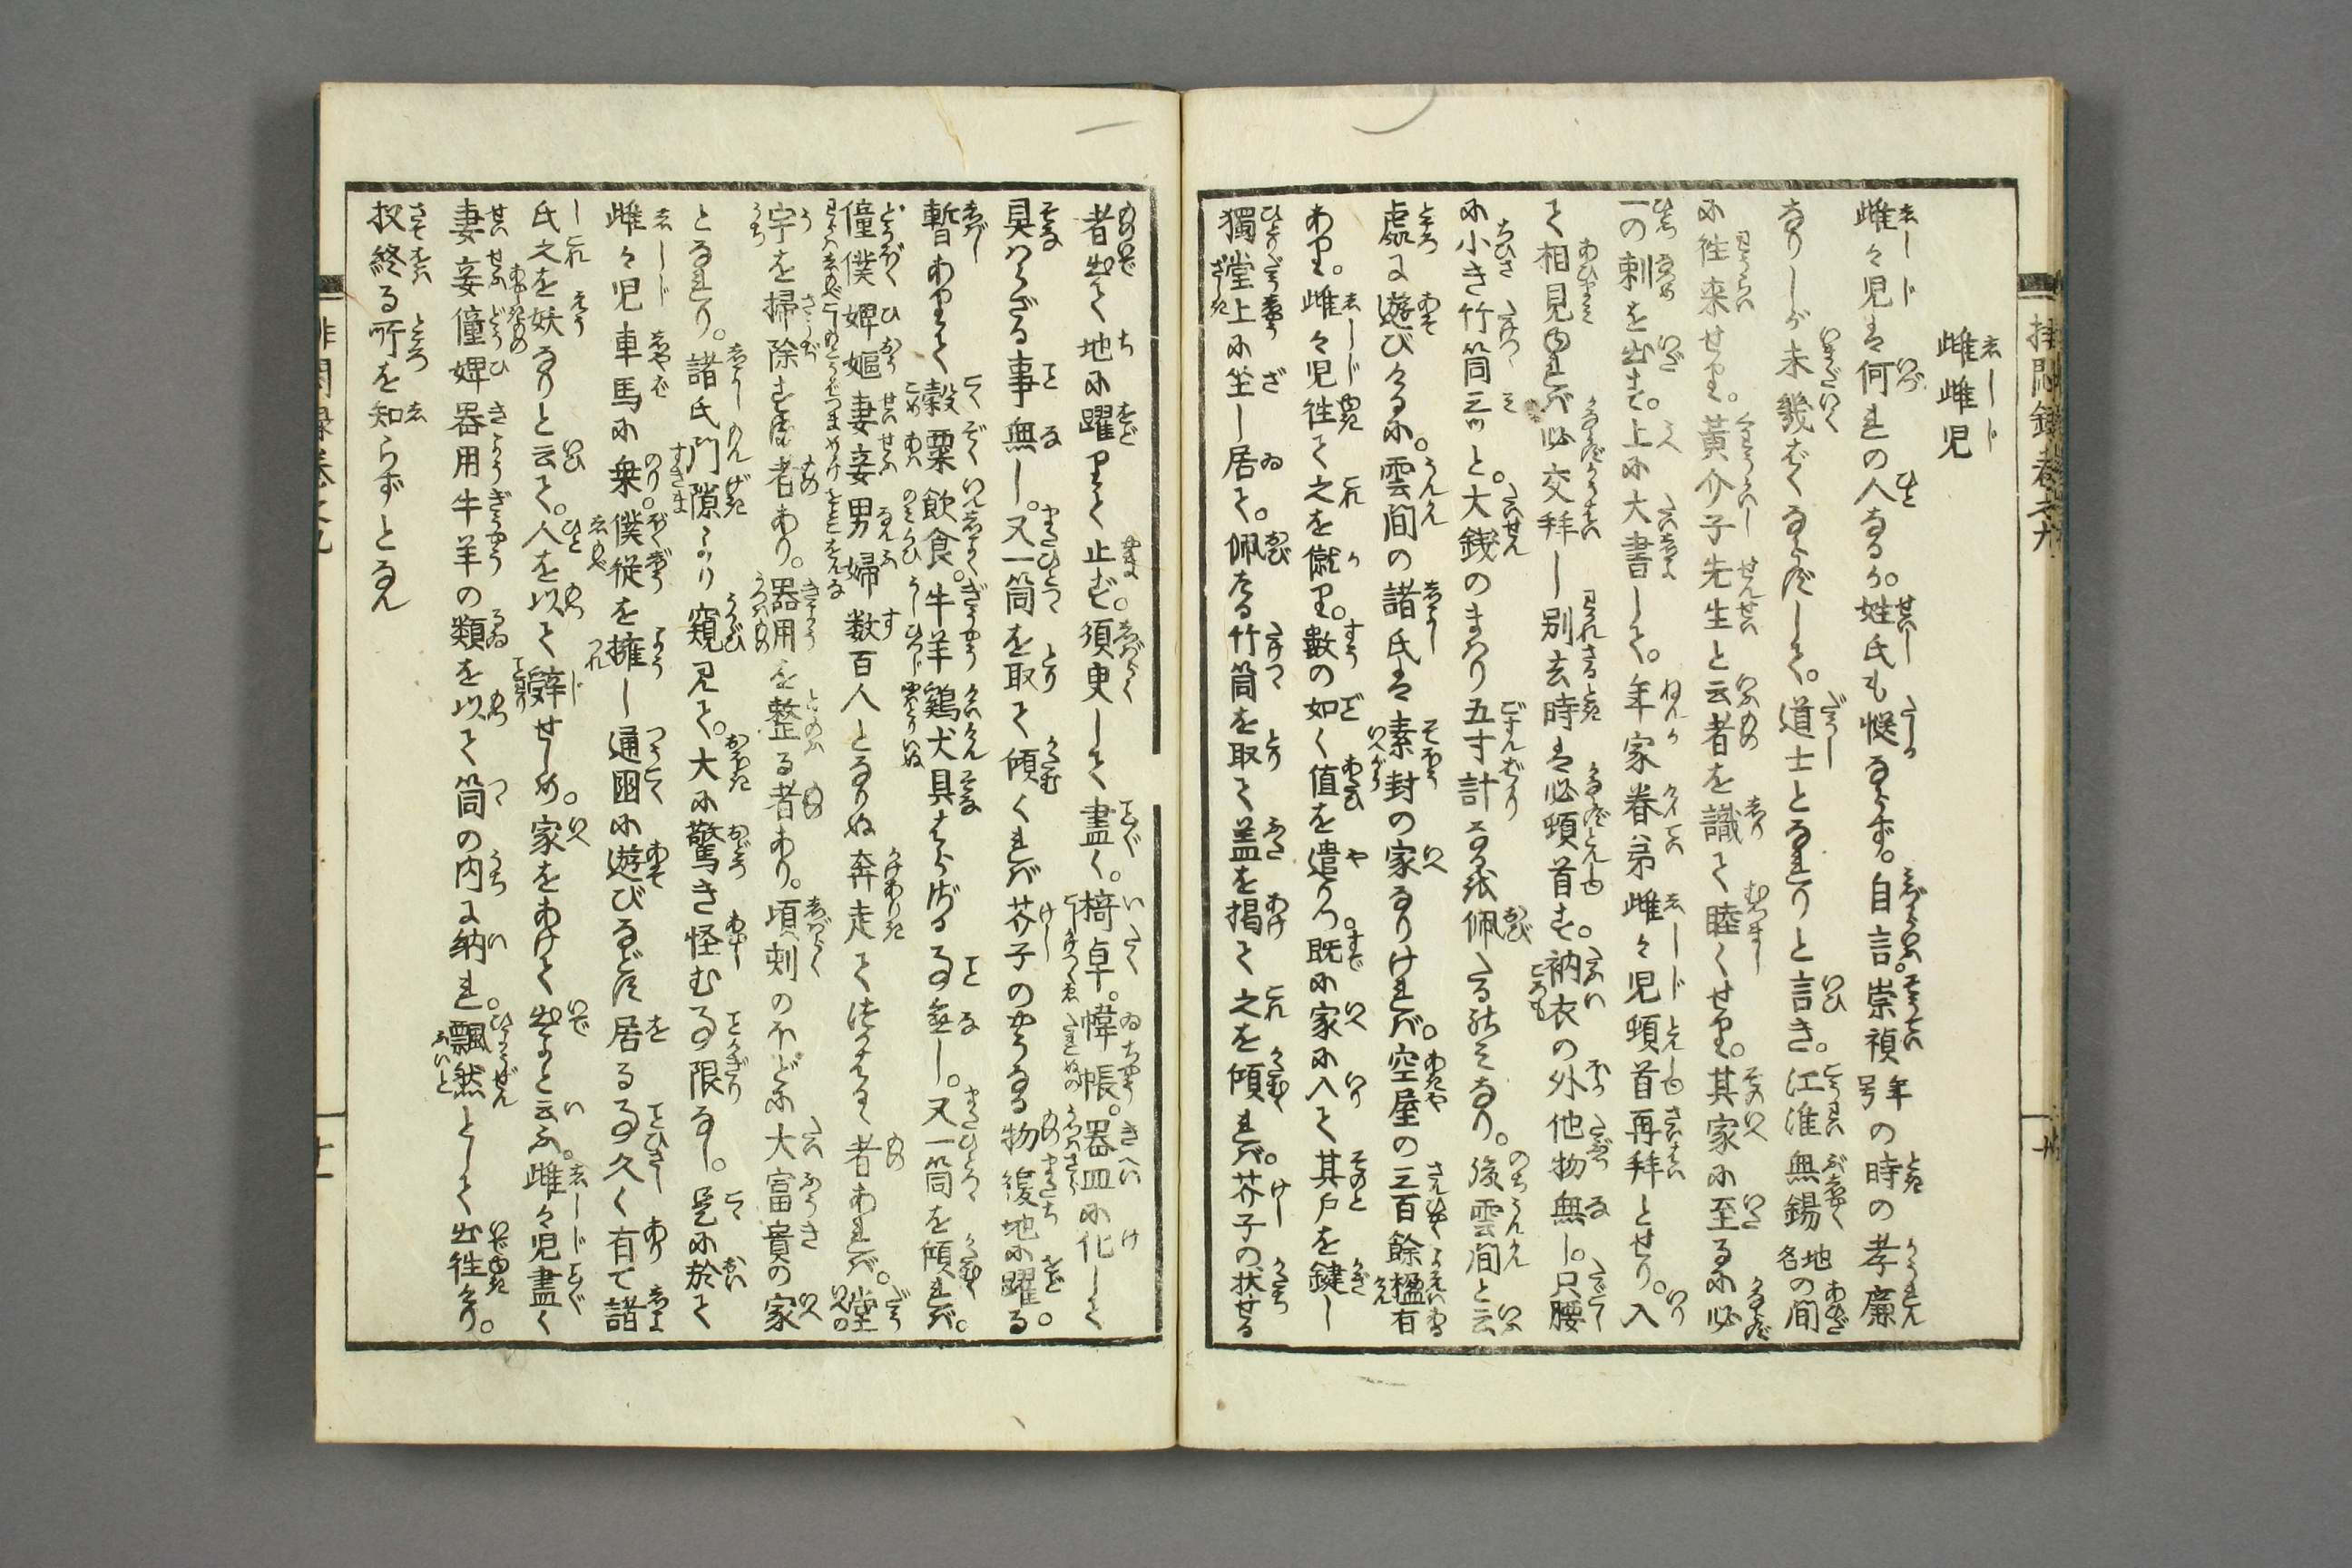 雌雌児
雌々児は何れの人なるか。姓氏も慥ならず。自言。崇禎年号の時の孝廉
なりしが未幾ばくならずして。道士となれりと言き。江淮無錫地名の間
に徃来せり。黄介子先生と云者を識て睦くせり。其家に至るに必
一の刺を出す。上に大書して。年家眷弟雌々児頓首再拝とせり。入
て相見ゆれば必交拜し別玄時は必頓首す。衲衣の外他物無し。只腰
に小き竹筒三ッと。大銭のまわり五寸計なる佩たるのミなり。後雲間と云
處に遊びけるに。雲間の諸氏は素封の家なりければ。空屋の三百餘楹有
あり。雌々児徃て之を僦り。数の如く値を遣りつ。既に家に入て其戸を鍵し
獨堂上に坐し居て。佩たる竹筒を取て盖を掲て之を傾れば。芥子の状せる
者出て地に躍りて止ず。須臾して盡く。椅卓。幃帳。器皿に化して
具はらざる事無し。又一筒を取て傾くれば芥子のやうなる物復地に躍る。
暫ありて穀粟飲食。牛羊鶏犬具はらざる事無し。又一筒を傾れば。
僮僕婢嫗妻妾男婦数百人となりぬ奔走て仕はるゝ者あれば。堂
宇を掃除する者あり。器用を整る者あり。頃刻のほどに大富貴の家
となれり。諸氏門隙より窺見て。大に驚き怪む事限なし。是に於て
雌々児車馬に乗り。僕従を擁し通国に遊びなど居る事久く有て諸
氏之を妖なりと云て。人を以て辞せしめ。家をあけて出よと云ふ。雌々児盡く
妻妾僮婢器用牛羊の類を以て筒の内に納れ。飄然として出徃けり。
扠終る所を知らずとなん